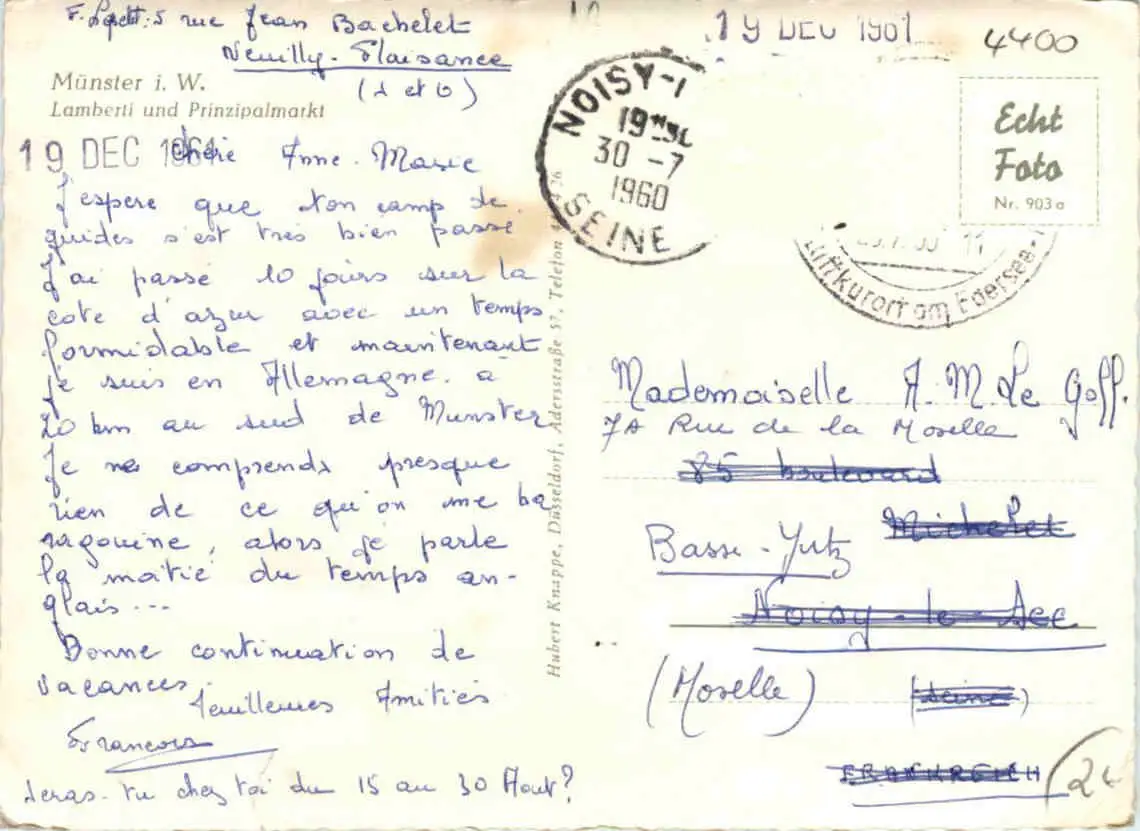 5 rue Jean Bachelet
Neuilly-Plaisance
(S et O)
Münster i. W.
Lamberti und Prinzipalmarkt
19 DEC 1961
Chère Anne-Marie
J'espere que ton camp de
guides s'est très bien passé
J'ai passé 10 jours sur la
cote d'azur avec un temps
formidable et maintenant
je suis en Allemagne. à
20 km au sud de Munster
Je ne comprends presque
rien de ce qu'on me ba
ragouine, alors je parle
la moitié du temps an-
glais...
Bonne continuation de
vacances.
Meilleures Amitiés
Francois
Seras-tu chez toi du 15 au 30 Aout?
Hubert Knappe, Düsseldorf, Adersstraße 57, Telefon
19 DEC 1961
4400
NOISY-l
19H
30 -7
1960
SEINE
Echt
Foto
Nr. 903a
Luftkurort am Edersee
Mademoiselle A. M. Le Goff.
7A Rue de la Moselle
85 boulevard
Michelet
Basse-Yutz
Noisy-le-Sec
(Moselle) (Seine)
FRANKREICH